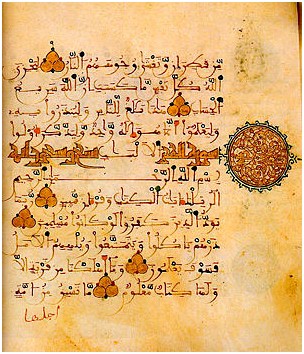 من قطران وتغشى وجوههم النار ليجزي
الله كل نفس ما كسبت إن الله سريع
الحساب هذا بلغ للناس ولينذروا به
وليعلموا أنما هو إله واحد وليذكر أولوا
الألباب
بسم الله الرحمن الرحيم
الر تلك ءايت الكتب وقرءان مبين ربما
يود الذين كفروا لو كانوا مسلمين
ذرهم يأكلوا ويتمتعوا ويلههم الأمل
فسوف يعلمون وما أهلكنا من قرية إلا
ولها كتاب معلوم ما تسبق من أمة
أجلها